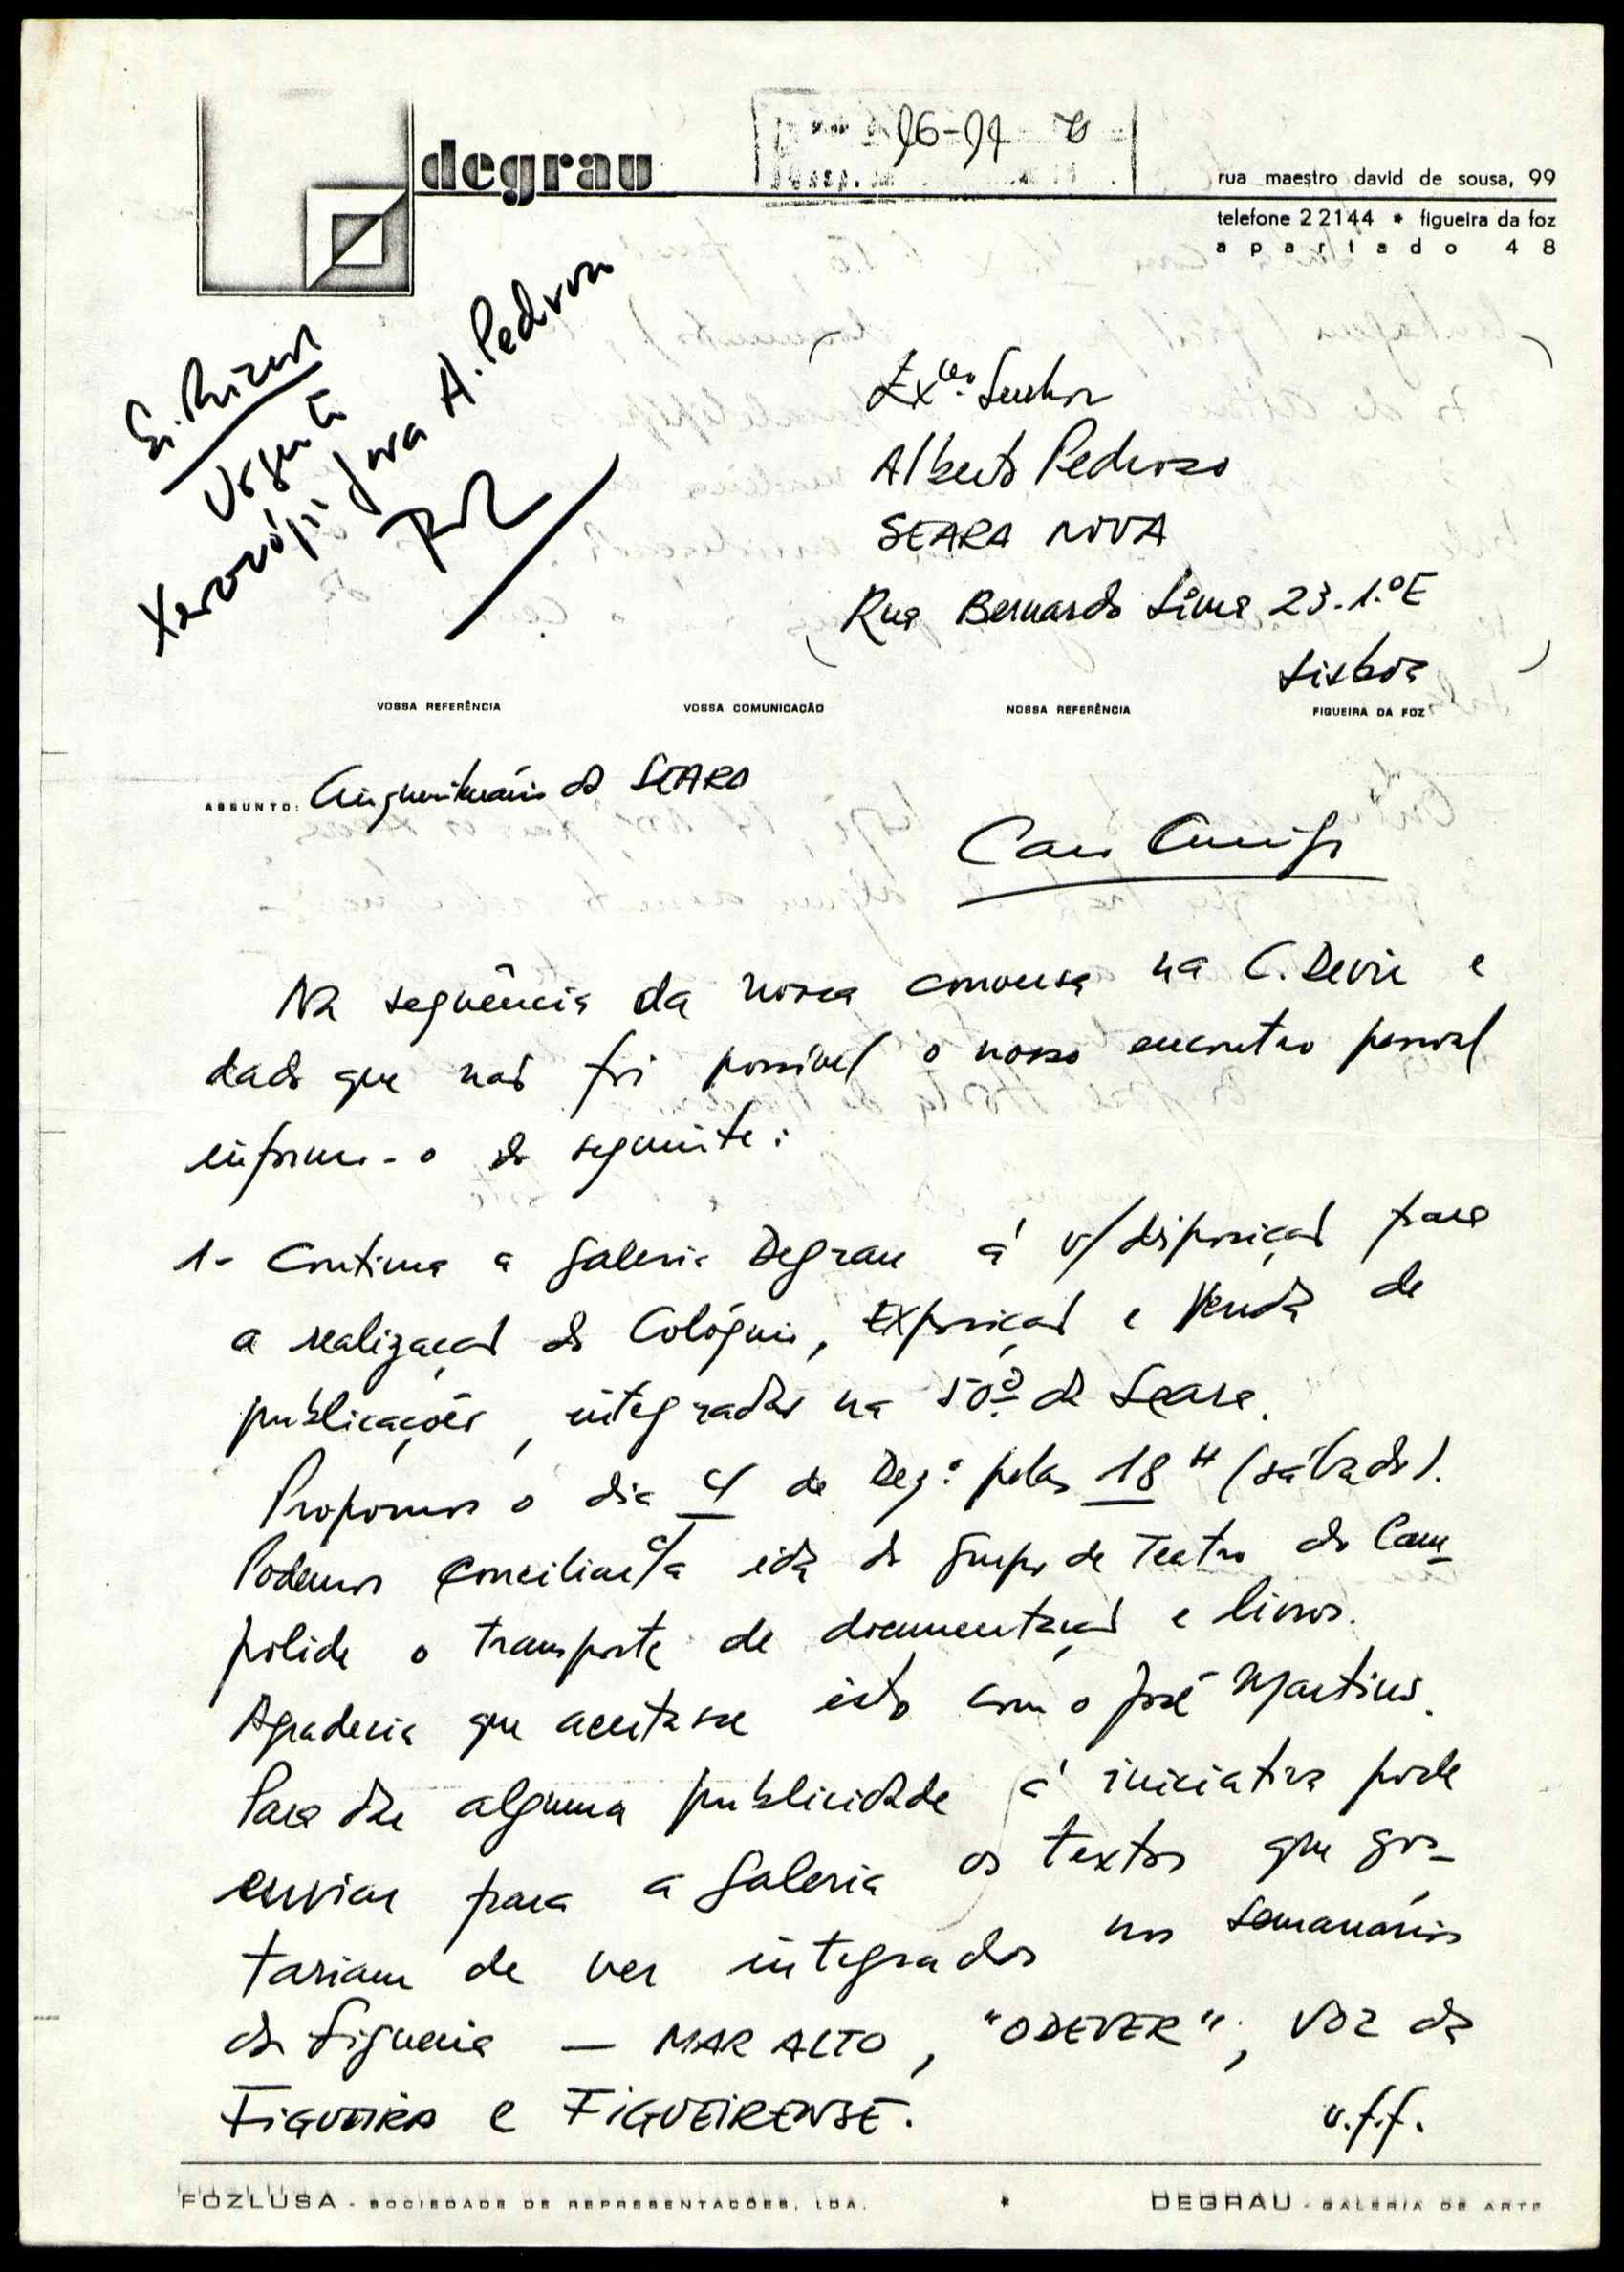 degrau
rua maestro david de sousa, 99
telefone 22144 * figueira da foz
apartado 48
Urgente
Xerocópia para A. Pedroso
Exmo. Senhor
Alberto Pedroso
SEARA NOVA
Rua Bernardo Lima 23.1.ºE
Lisboa
VOSSA REFERÊNCIA
VOSSA COMUNICAÇÃO
NOSSA REFERÊNCIA
FIGUEIRA DA FOZ
ASSUNTO: Cinquentenário da SEARA
Caro Amigo
Na sequência da nossa conversa na C. Devir e
dado que não foi possível o nosso encontro pessoal
informo-o do seguinte:
1- Continua a Galeria Degrau á v/disposição para
a realização do Colóquio, Exposição e Venda de
publicações, integradas na 50º da Seara.
Propomos o dia 4 de Dez.º pelas 18H (sábado).
Podemos conciliar c/a ida do Grupo de Teatro do Cam-
polide o transporte de documentação e livros.
Agradecia que acertasse isto com o José Martins.
Para dar alguma publicidade á iniciativa pode
enviar para a Galeria os textos que gos-
tariam de ver integrados nos semanários
da Figueira — MAR ALTO, "O DEVER", VOZ da
FIGUEIRA e FIGUEIRENSE.
v.f.f.
FOZLUSA - SOCIEDADE DE REPRESENTAÇÕES, LDA. * DEGRAU - GALERIA DE ARTE